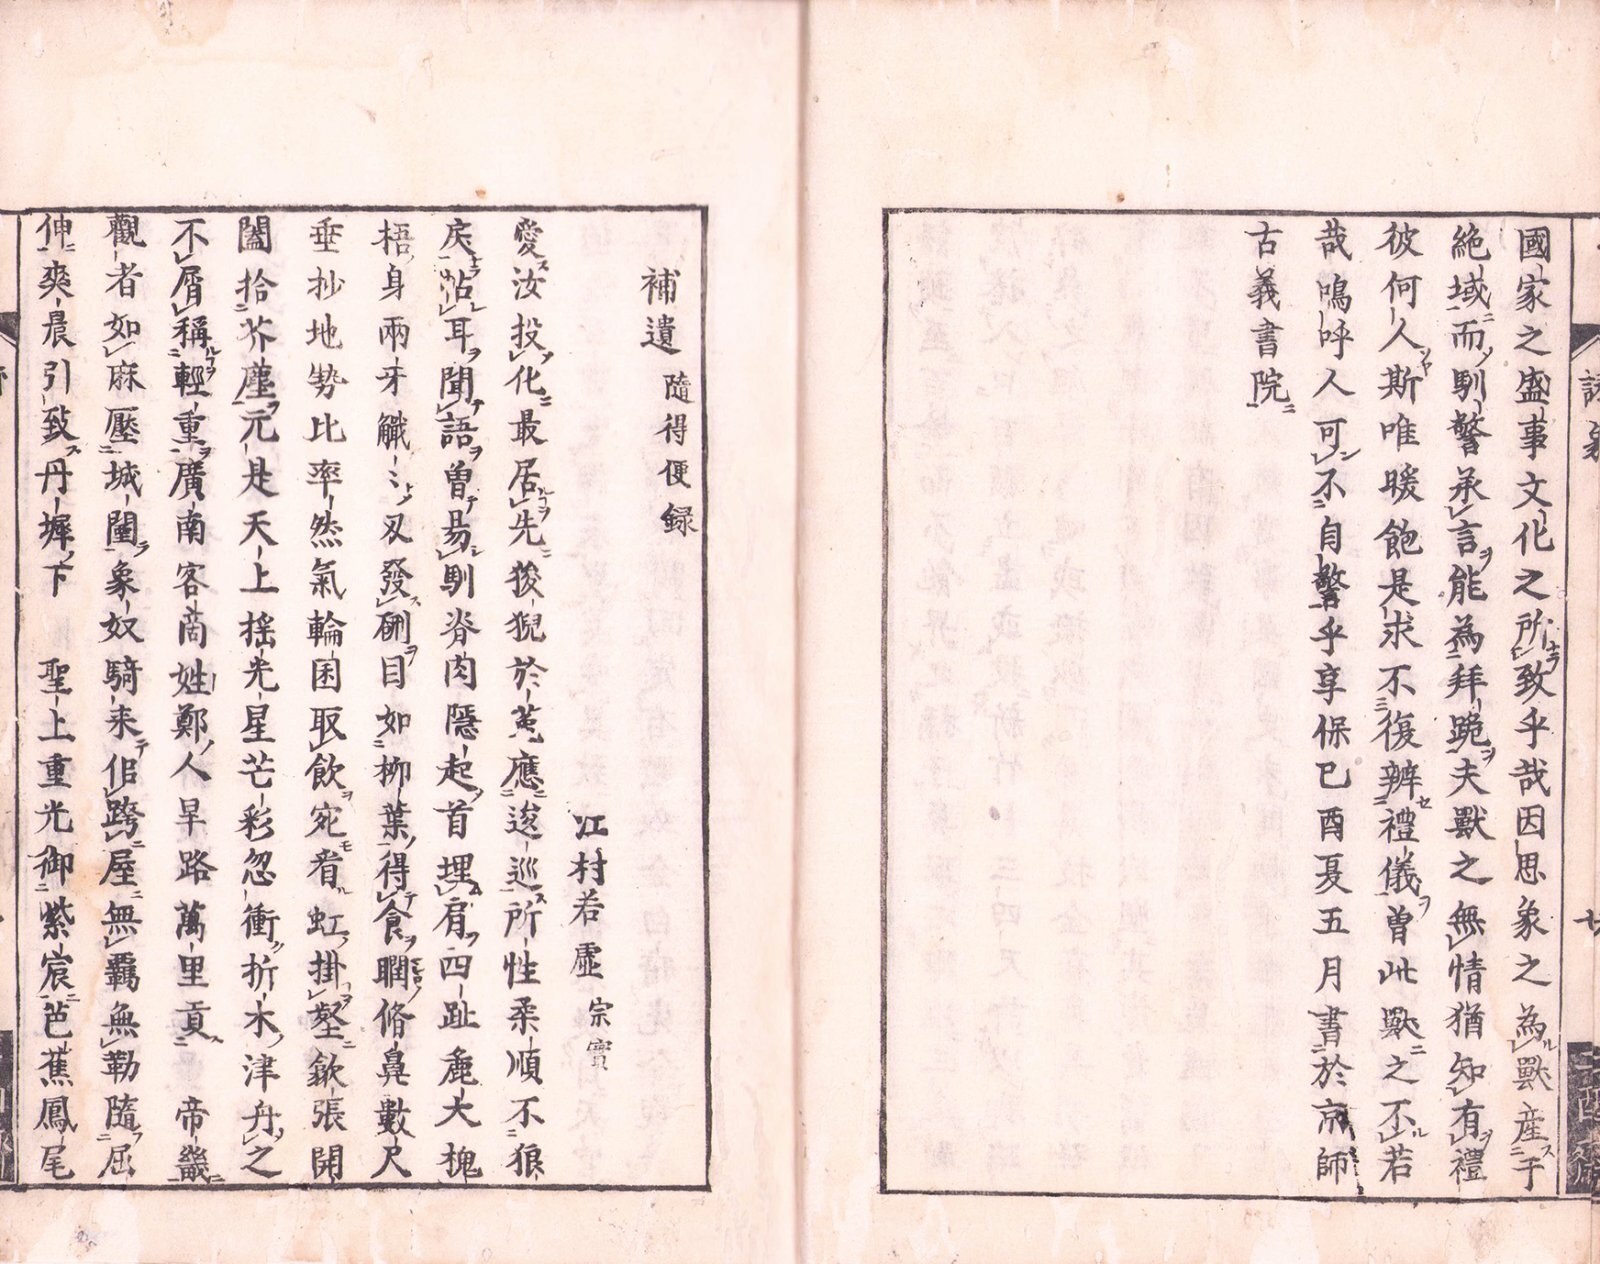 國家之盛事文化之所致乎哉因思象之為獸産于
絶域而馴警承言能為拜跪夫獸之無情猶知有禮
彼何人斯唯暖飽是求不復辨禮儀曽此獸之不若
哉嗚呼人可不自警乎享保已酉夏五月書於京師
古義書院
補遺 隨得便録
江村若虛 宗實
愛汝投化最居先狻猊於菟應逡巡所性柔順不狼
戻帖耳聞語曽易馴脊肉隱起首埋肩四趾麁大槐
梧身兩牙觿〻及發硎目如柳葉得食瞤脩鼻數尺
垂抄地勢比率然氣輪囷取飲宛看虹掛壑歛張開
闔拾芥塵元是天上揺光星芒彩忽衝折木津舟之
不屑稱輕重廣南客啇姓鄭人旱路萬里貢帝畿
觀者如麻壓城闉象奴騎来佀跨屋無羈無勒隨屈
伸爽晨引致丹墀下 聖上重光御紫宸芭蕉鳳尾